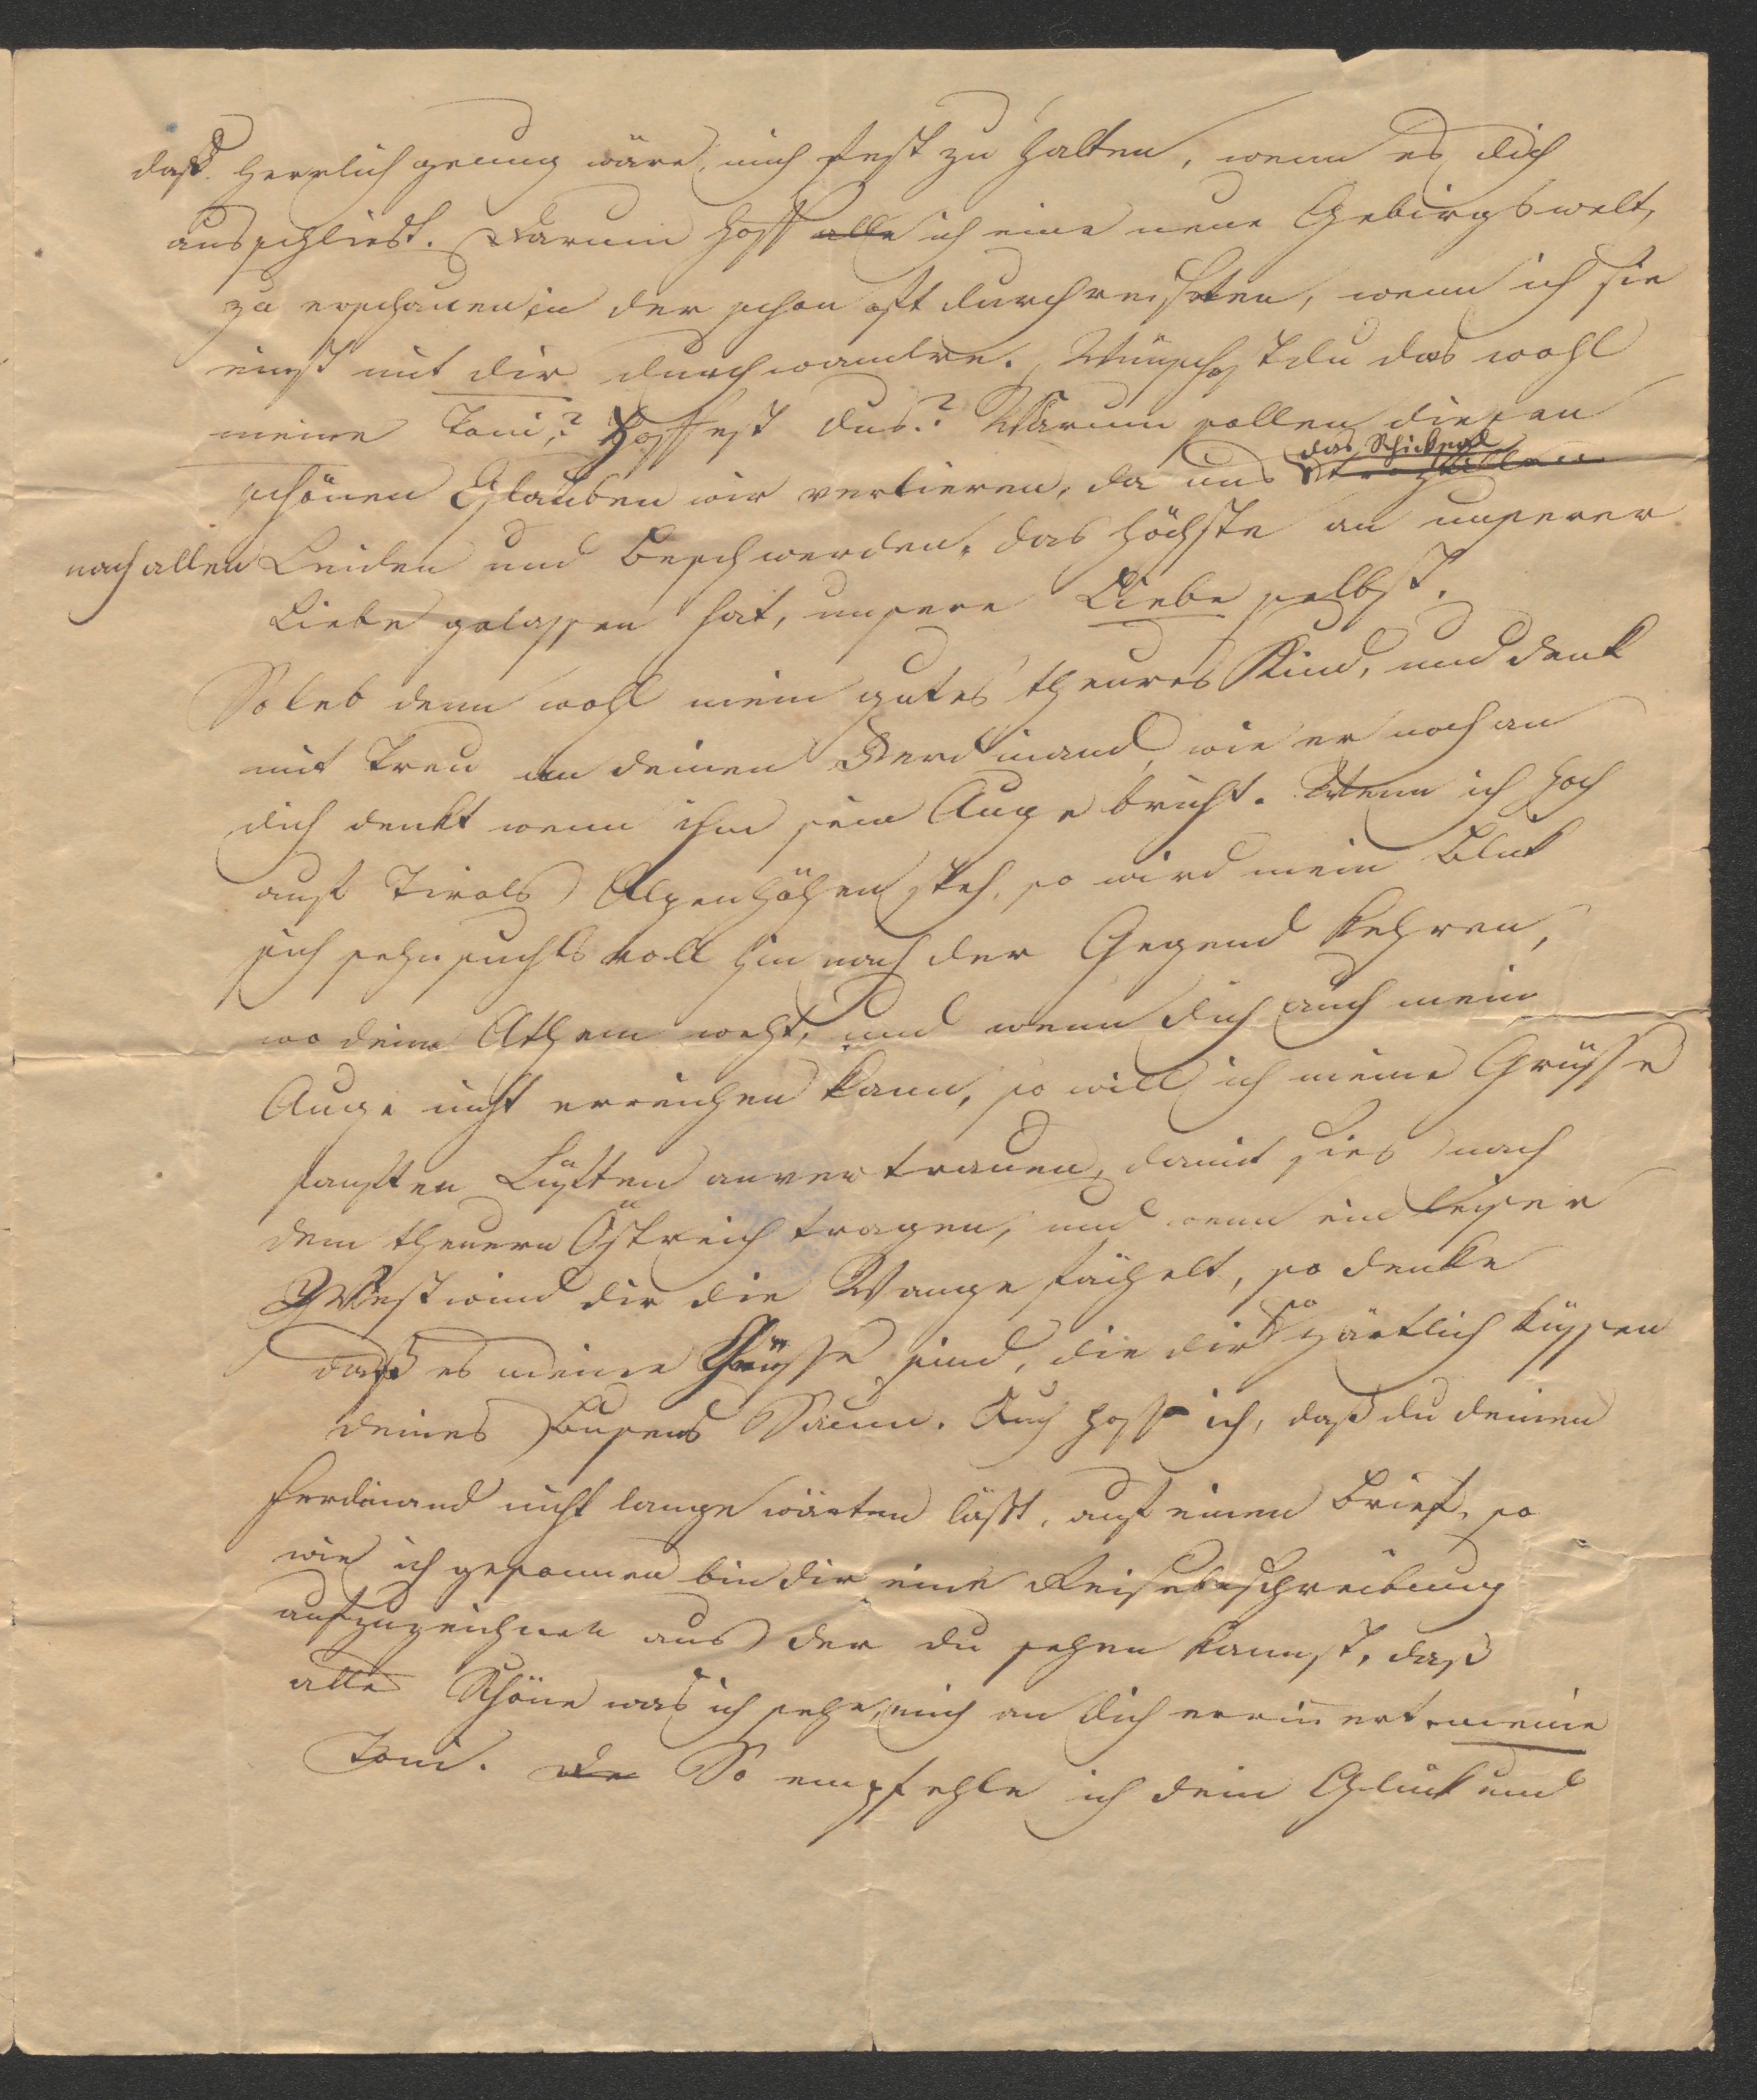 daß herrlich genug wäre, mich fest zu halten, wenn es dich
ausschließt. Darum hoff alle ich eine neue Gebirgswelt,
zu erschauen in der schon oft durchreisten, wenn ich sie
einst mit dir durchwandre. Wünschest du das wohl
meine Toni? Hoffest dus? Warum sollen diesen
das Schicksal
schönen Glauben wir verlieren, da uns
nach allen Leiden und Beschwerden, das Höchste an unserer
Liebe gelassen hat, unsere Liebe selbst.
So leb denn wohl mein gutes theures Kind, und denk
mit Treu an deinen Ferdinand, wie er noch an
dich denkt wenn ihm sein Auge bricht. Wenn ich hoch
auf Tirols Alpenhöhen steh, so wird mein Blick
sich sehnsuchtsvoll hin nach der Gegend kehren,
wo dein Athem weht, und wenn dich auch mein
Auge nicht erreichen kann, so will ich meine Grüsse
sanften Lüften anvertrauen, damit sies nach
dem theuern Östreich tragen, und wenn ein leiser
Westwind dir die Wange fächelt, so denke
so
daß es meine Grüsse sind, die dir zärtlich küssen
deines Busens Saum. Auch hoff ich, daß du deinen
Ferdinand nicht lange warten läßt, auf einen Brief, so
wie ich gesonnen bin dir eine Reisebeschreibung
aufzuzeichnen aus der du sehen kannst, daß
alles Schöne was ich sehe, mich an dich errinnert meine
Toni. De So empfehle ich dein Glück und